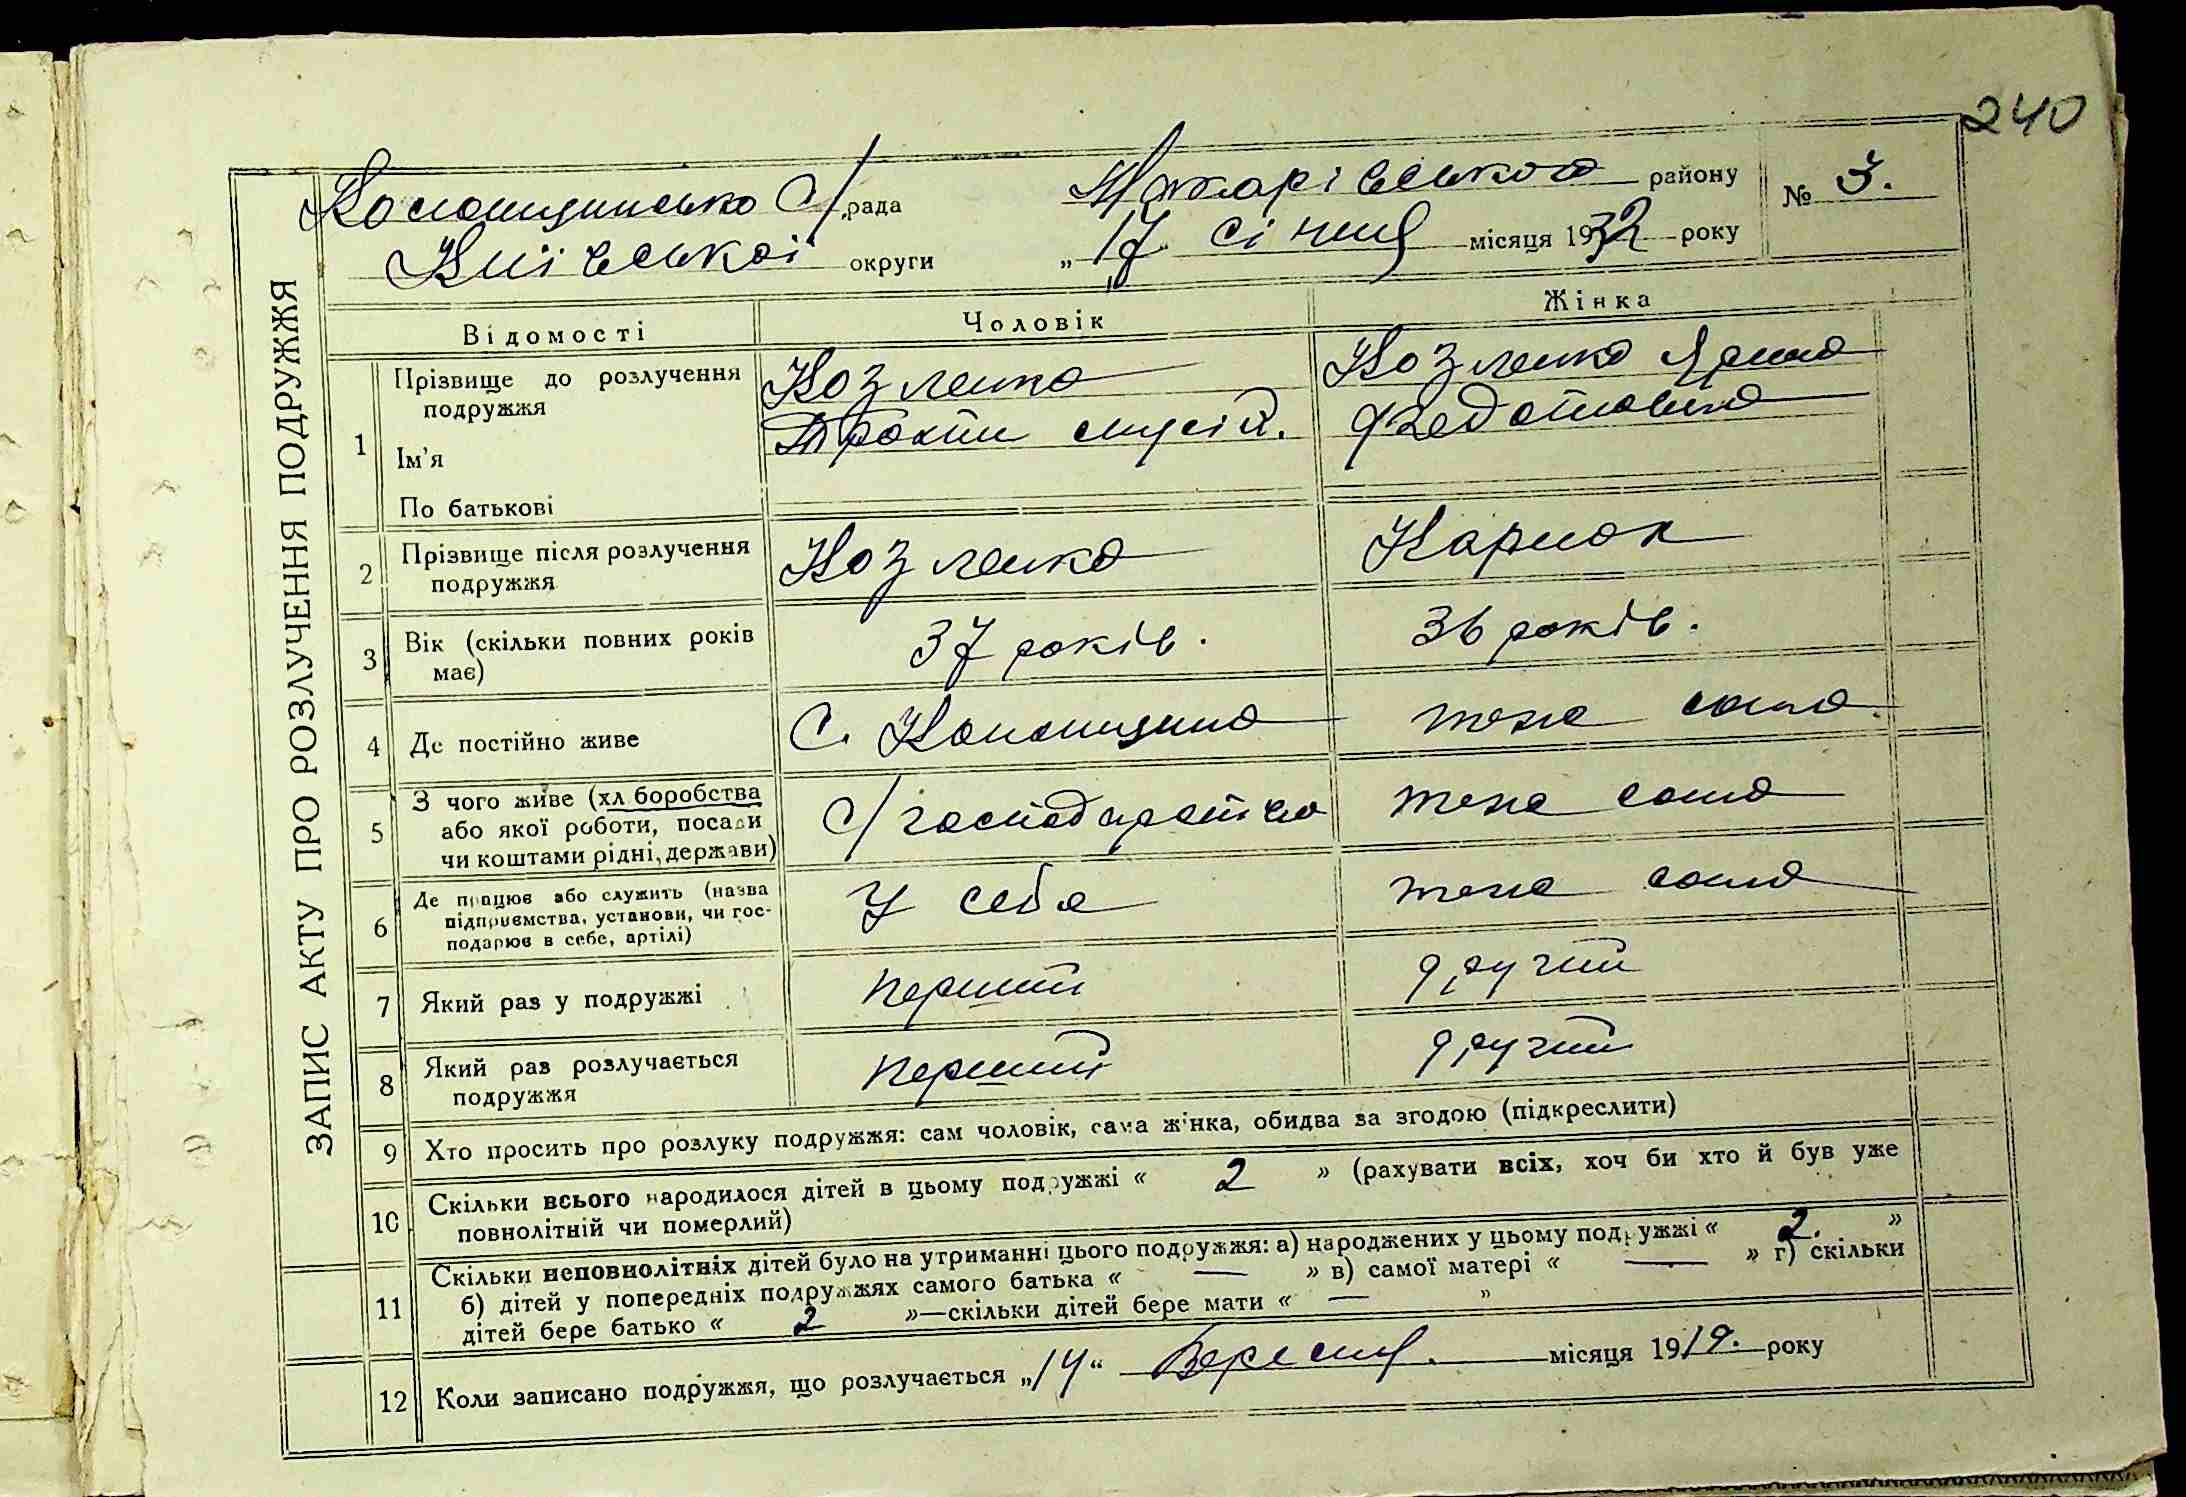 240
ЗАПИС АКТУ ПРО РОЗЛУЧЕННЯ ПОДРУЖЖЯ
Колонщинсько С/рада Макарівського району № 3.
Київської округи „17" січня місяця 1932 року
Відомості Чоловік Жінка
1 Прізвище до розлучення подружжя Козленко Козленко Ярина
Ім'я Трохим Федотовна
По батькові
2 Прізвище після розлучення подружжя Козленко
3 Вік (скільки повних років має) 37 років. 36 років.
4 Де постійно живе С. Колонщина теж сама.
5 З чого живе (хл.боробства С/господарство теж сама
або якої роботи, посади
чи коштами рідні, держави)
6 Де працює або служить (назва У себе теж сама
підприємства, установи, чи гос-
подарює в себе, артілі)
7 Який раз у подружжі перший другий
8 Який раз розлучається подружжя перший другий
9 Хто просить про розлуку подружжя: сам чоловік, сама жінка, обидва за згодою (підкреслити)
10 Скільки всього народилося дітей в цьому подружжі « 2 » (рахувати всіх, хоч би хто й був уже
повнолітній чи померлий)
11 Скільки неповнолітніх дітей було на утриманні цього подружжя: а) народжених у цьому подружжі « 2. »
б) дітей у попередніх подружжях самого батька « — » в) самої матері « — » г) скільки
дітей бере батько « 2 »—скільки дітей бере мати « — »
12 Коли записано подружжя, що розлучається „14" Вересня. місяця 1919. року